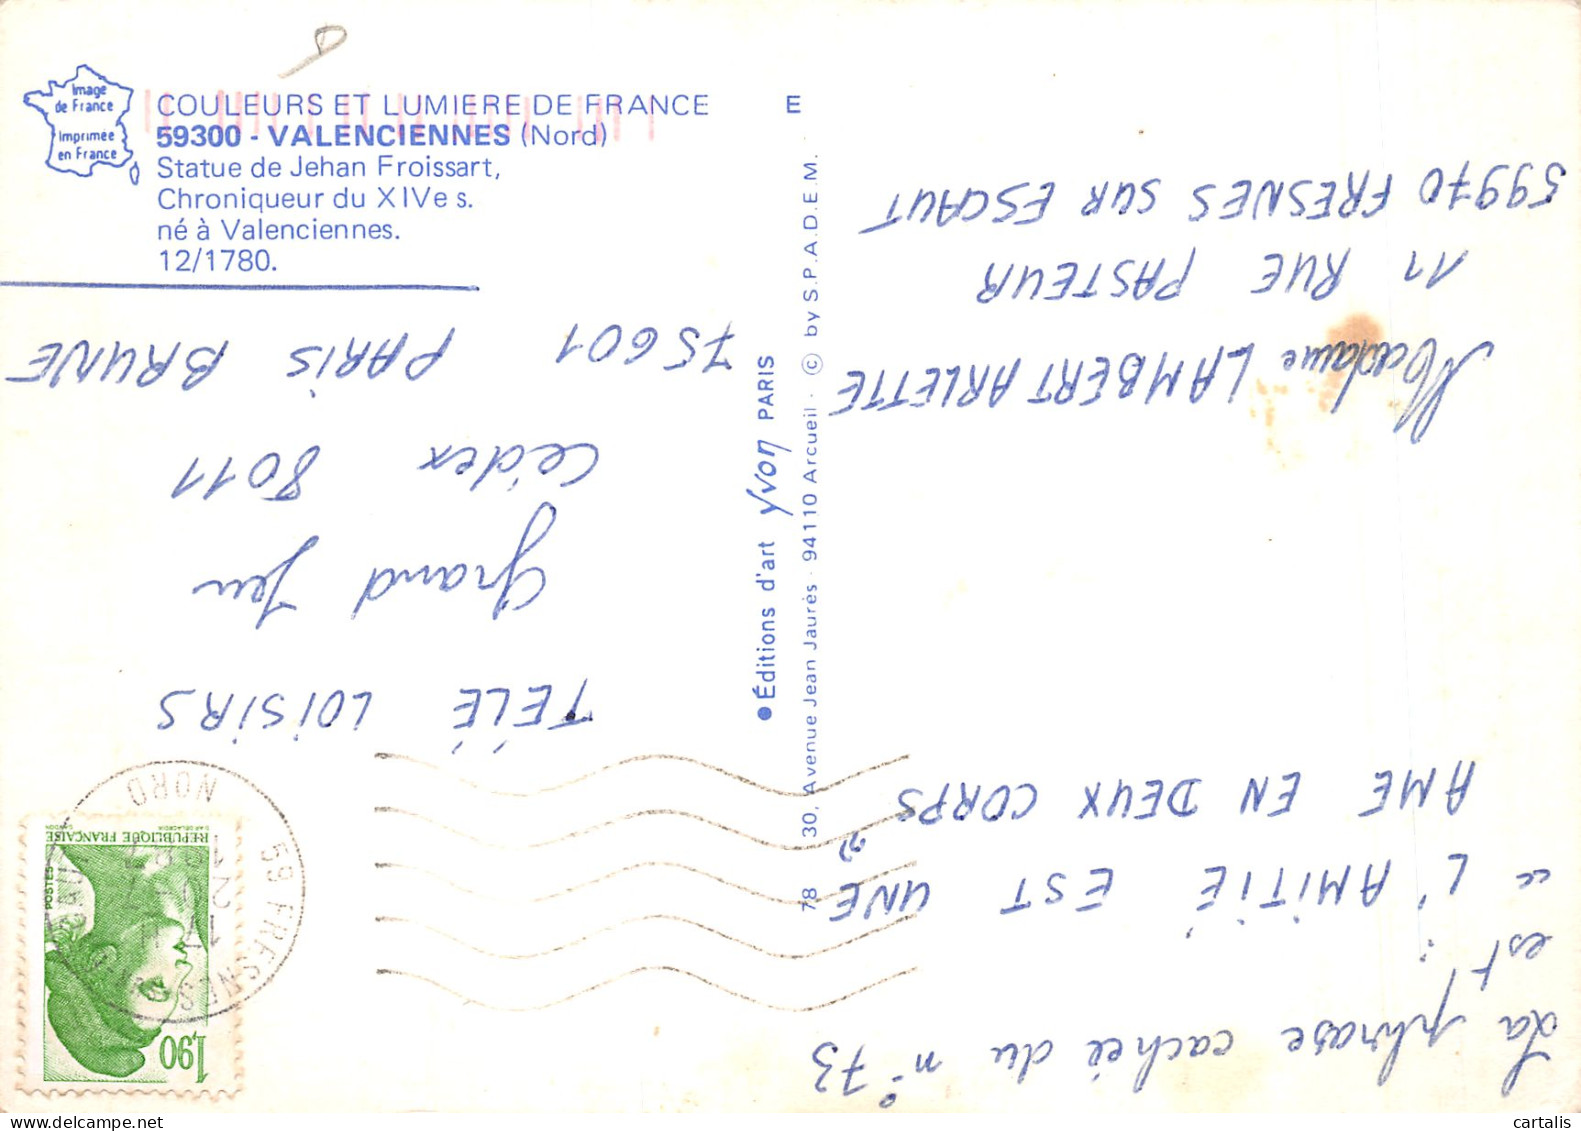 Image
de France
Imprimée
en France
COULEURS ET LUMIERE DE FRANCE
59300 - VALENCIENNES (Nord)
Statue de Jehan Froissart,
Chroniqueur du XIVe s.
né à Valenciennes.
12/1780.
E
●Éditions d'art yvon PARIS
78 30, Avenue Jean Jaurès · 94110 Arcueil · © by S.P.A.D.E.M.
La phrase cachée du n° 73
est :
« L'AMITIÉ EST UNE
AME EN DEUX CORPS »
Madame LAMBERT ARLETTE
11 RUE PASTEUR
59970 FRESNES SUR ESCAUT
TÉLÉ LOISIRS
Grand Jeu
Cédex 8011
75601 PARIS BRUNE
1,90
POSTES
REPUBLIQUE FRANÇAISE
59 FRESNES
NORD
cartalis